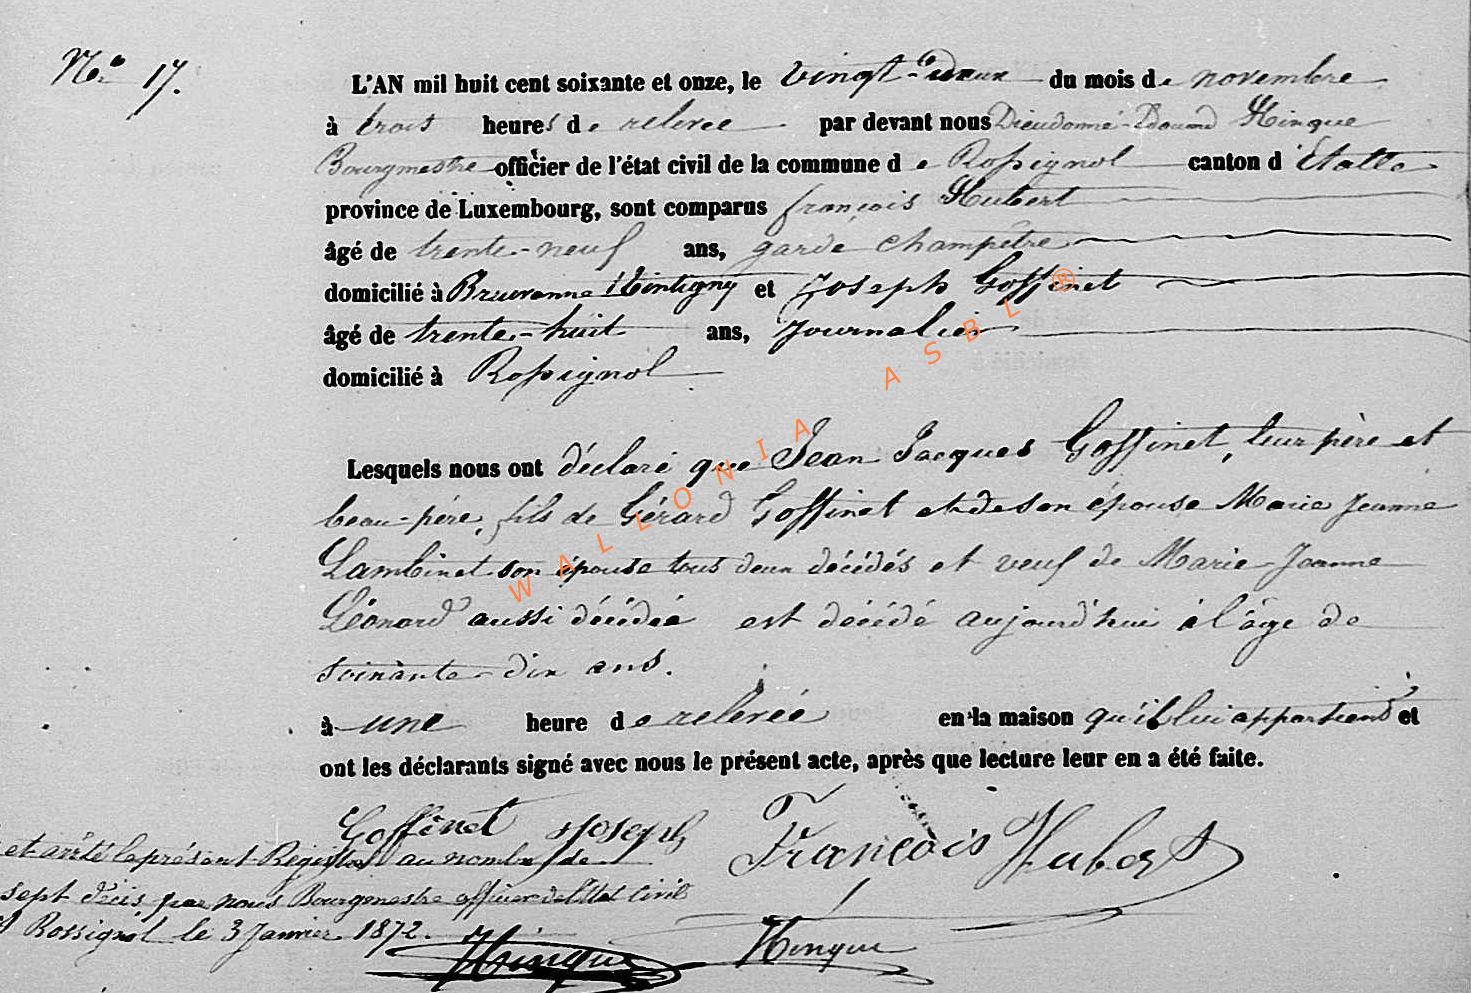 No 17.
L'AN mil huit cent soixante et onze, le vingt-deux du mois de novembre
à trois heures de relevée par devant nous Dieudonné Edouard Hinque
Bourgmestre officier de l'état civil de la commune de Rossignol canton d'Etalle
province de Luxembourg, sont comparus françois Hubert
âgé de trente-neuf ans, garde champêtre
domicilié à Breuvanne Tintigny et Joseph Goffinet
âgé de trente-huit ans, Journalier
domicilié à Rossignol
Lesquels nous ont déclaré que Jean Jacques Goffinet, leur père et
beau-père, fils de Gérard Goffinet et de son épouse Marie Jeanne
Lambinet son épouse tous deux décédés et veuf de Marie Jeanne
Léonard aussi décédée est décédé aujourd'hui à l'âge de
soixante-dix ans.
à une heure de relevée en la maison qu'il lui appartient et
ont les déclarants signé avec nous le présent acte, après que lecture leur en a été faite.
Goffinet Joseph François Hubert
et arrêté le présent Registre au nombre de
sept décès par nous Bourgmestre officier de l'état civil
Rossignol le 3 Janvier 1872.
Hinque Hinque
WALLONIA ASBL ®